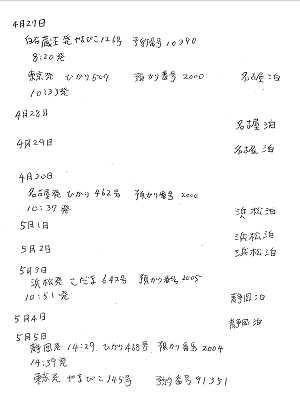 4月27日
白石蔵王発 やまびこ126号 予約番号 10390
8:20発
東京発 ひかり509 預かり番号 2000 名古屋泊
10:33発
4月28日
名古屋泊
4月29日
名古屋泊
4月30日
名古屋発 ひかり 462号 預かり番号 2000
10:39発 浜松泊
5月1日
浜松泊
5月2日
浜松泊
5月3日
浜松発 こだま 642号 預かり番号 2005
10:51発 静岡泊
5月4日
静岡泊
5月5日
静岡発 14:29 ひかり468号 預かり番号 2004
14:39発
東京発 やまびこ145号 予約番号 91351